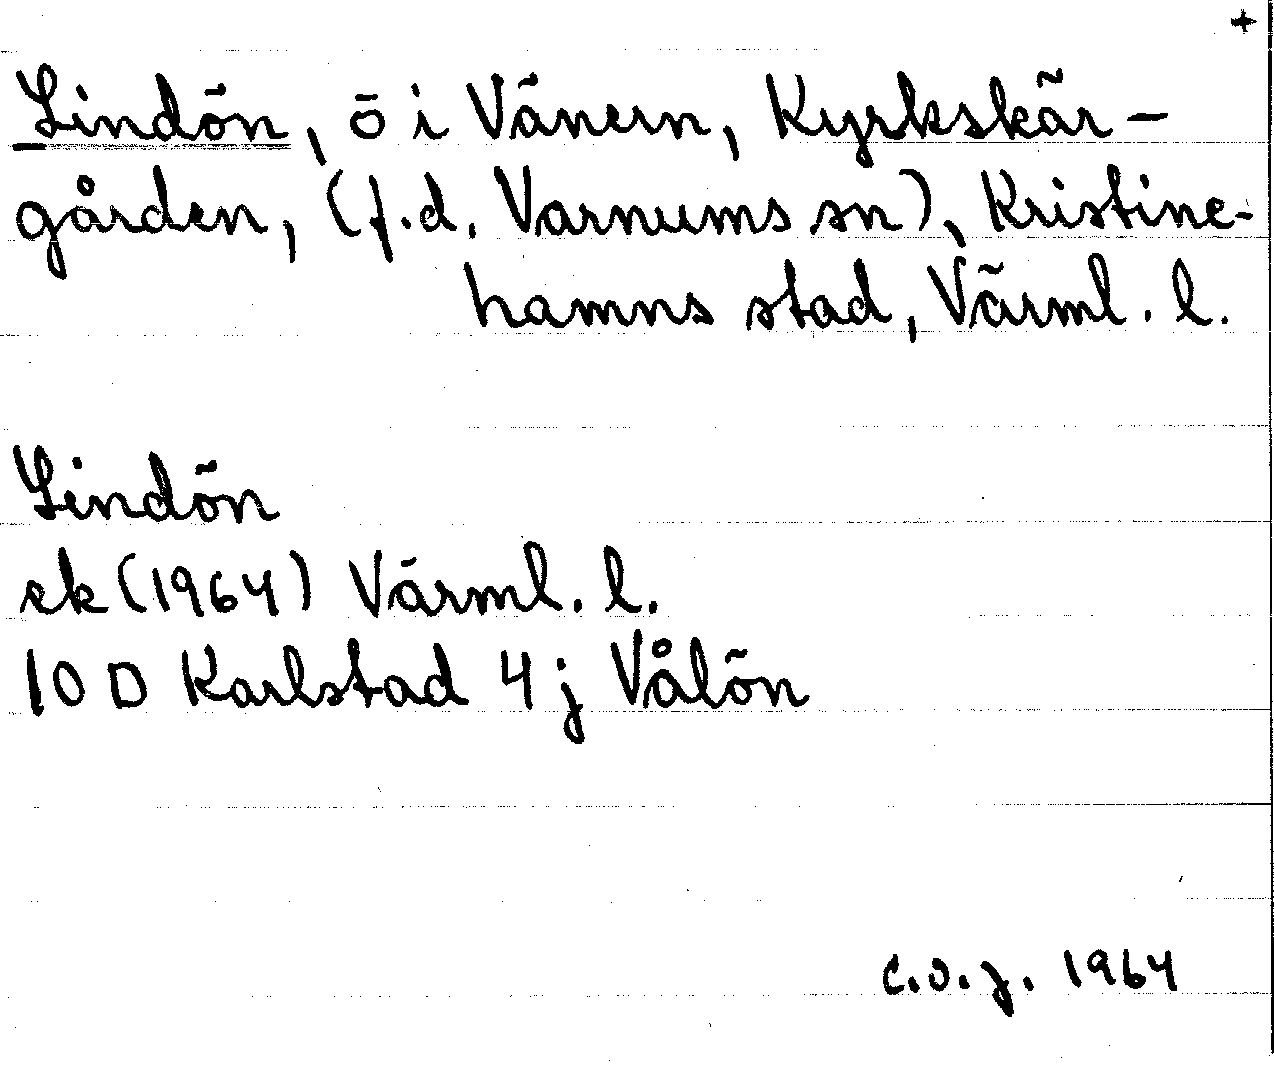 +
Lindön, ö i Vänern, Kyrkskär-
gården, (f.d. Varnums sn), Kristine-
hamns stad, Värml. l.
Lindön
ek (1964) Värml. l.
10 D Karlstad 4 j Vålön
C.O.J. 1964